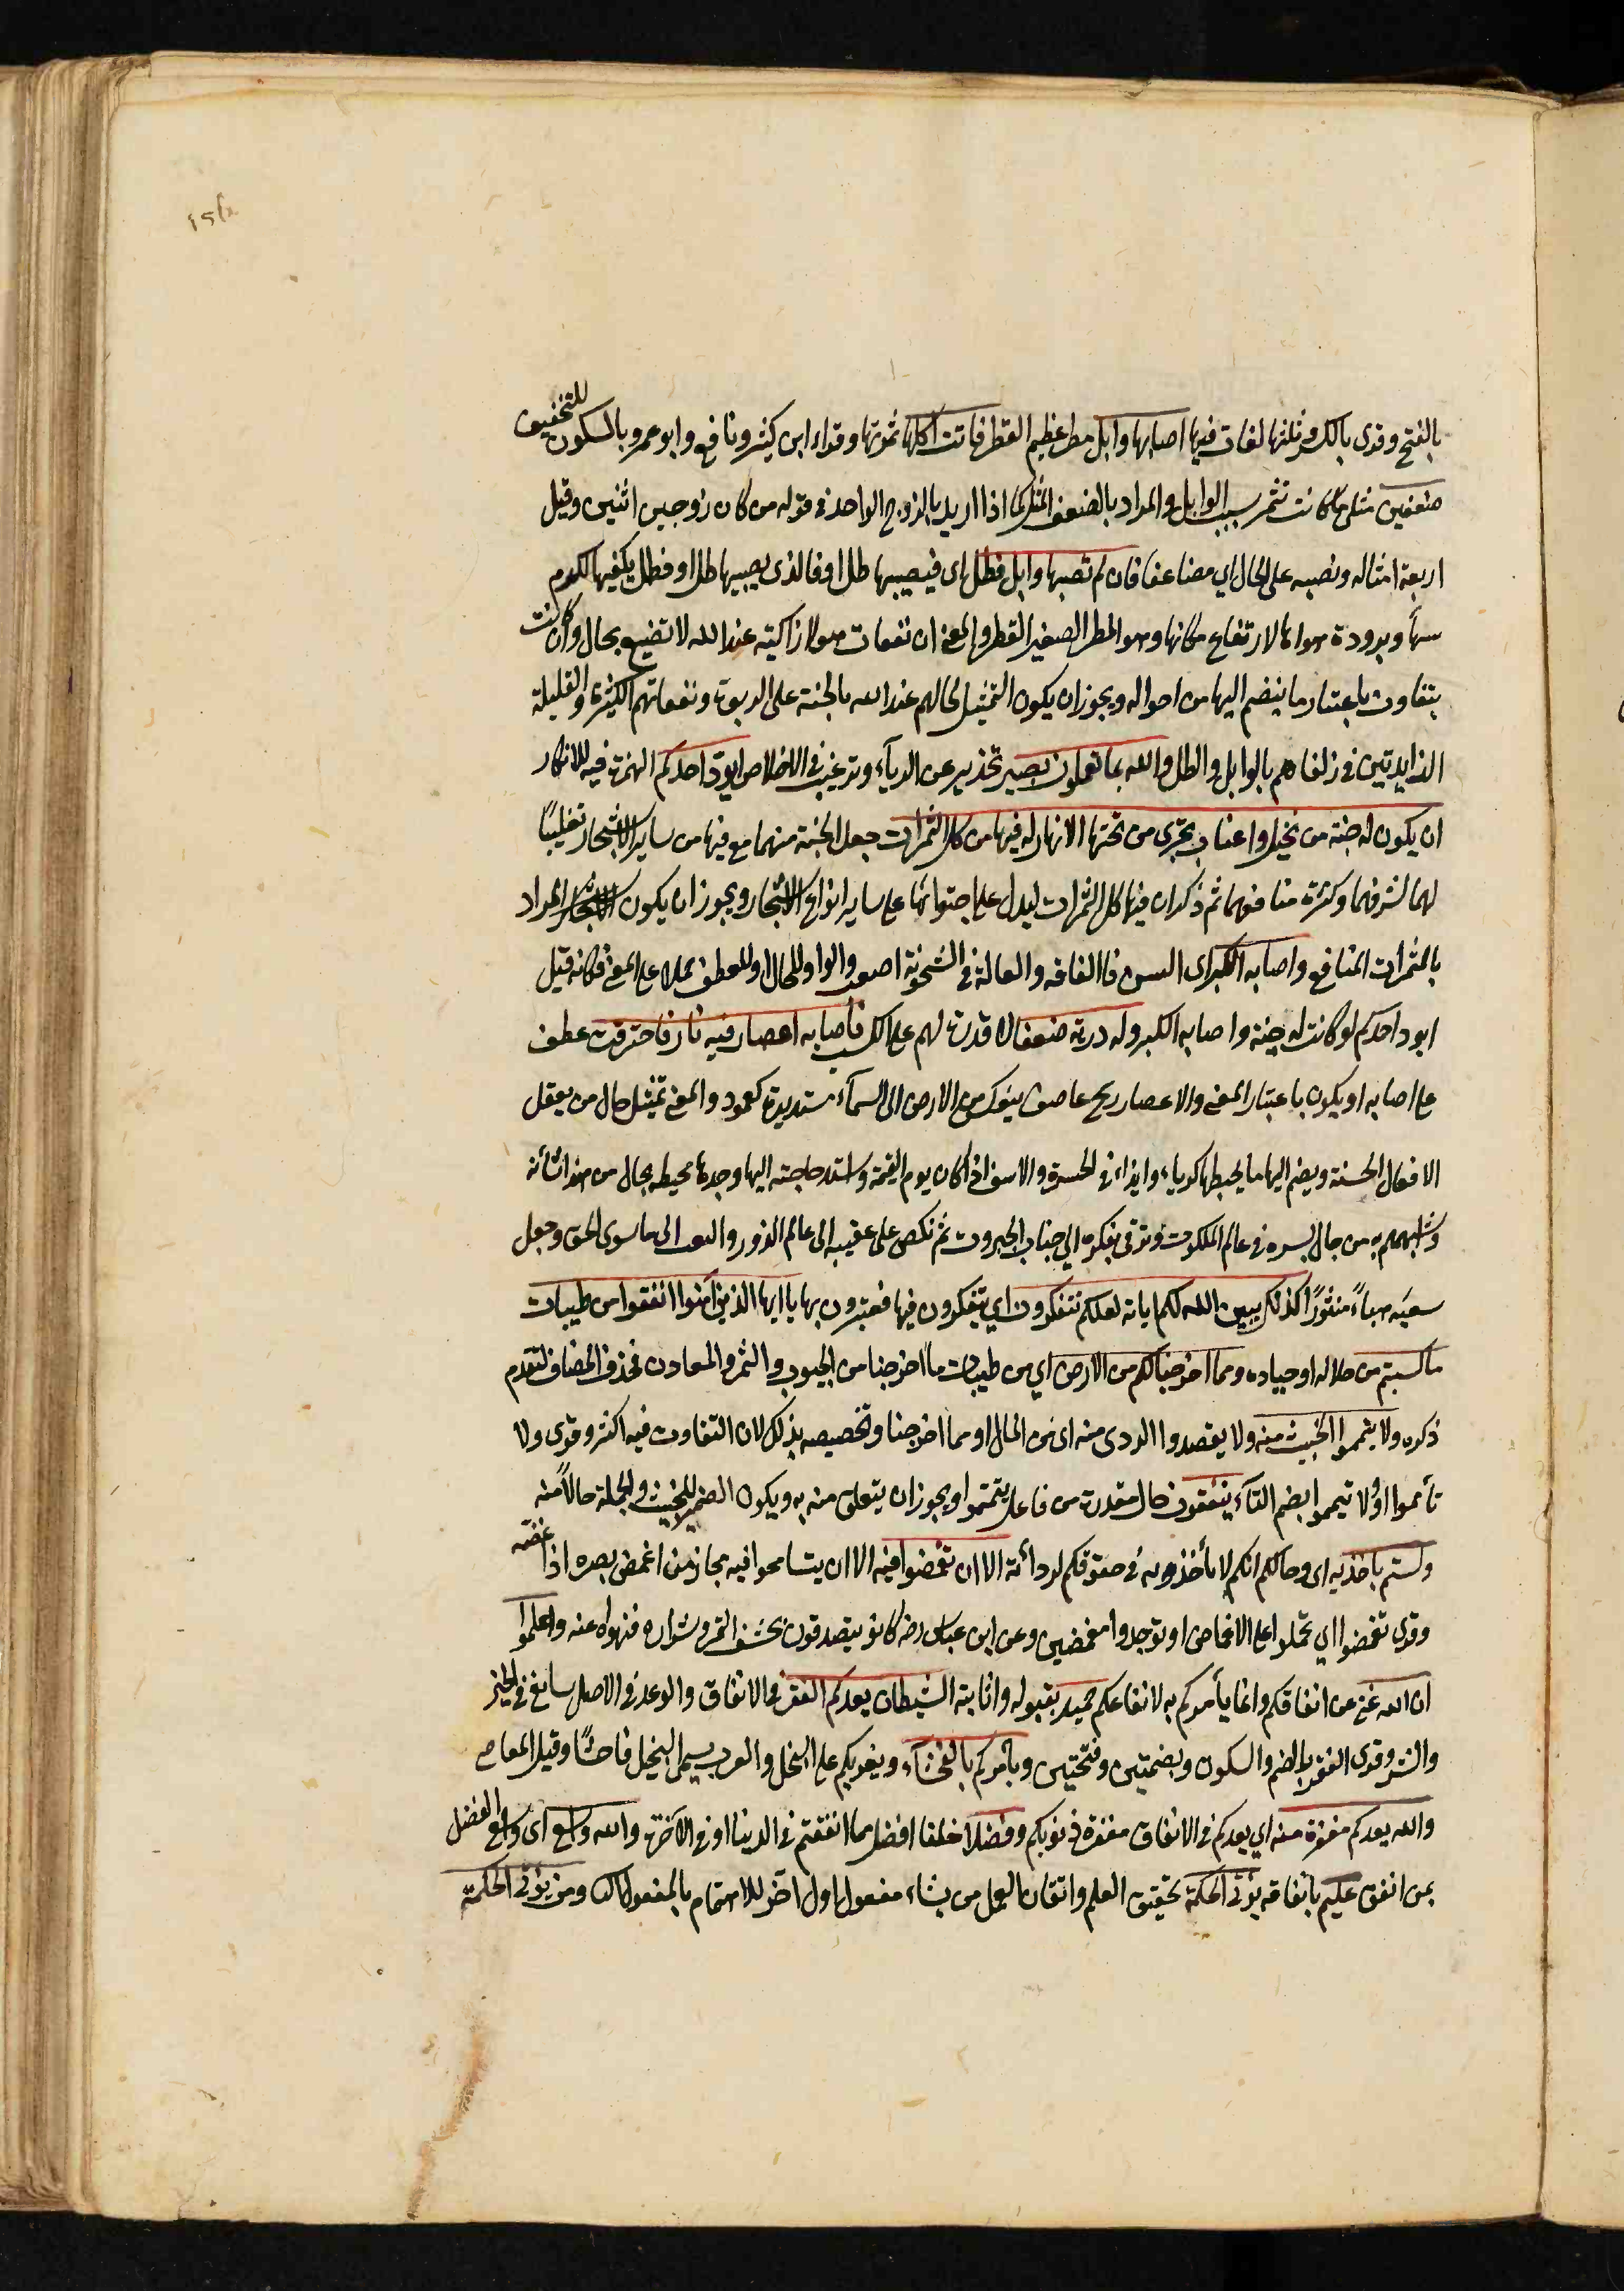 بالفتح وقرئ بالكسر وثلثها لغات فيها اصابها وابل مطر عظيم القطر فاتت اكلها ثمرتها وقراء ابن كثير ونافع وابو عمرو بالسكون للتخفيف
ضعفين مثلي ما كانت تثمر بسبب الوابل والمراد بالضعف المثل كما اذا اريد بالزوج الواحد في قوله من كل زوجين اثنين وقيل
اربعة امثاله ونصبه على الحال اي مضاعفا فان لم تصبها وابل فطل اي فيصيبها طل او فالذي يصيبها طل او فطل يكفيها لكرم
وبرودة هوائها لارتفاع مكانها وهو المطر الصغير القطر والمعنى ان نفقات هولا زاكية عند الله لا تضيع بحال وان كانت
يتفاوت باعتبار ما ينضم اليها من احواله ويجوز ان يكون التمثيل لحالهم عند الله بالجنة على الربوة ونفقاتهم الكثيرة والقليلة
الزايدتين في زلفاهم بالوابل والطل والله بما تعملون بصير تحذير عن الرياء وترغيب في الاخلاص ايود احدكم الهمزة فيه للانكار
ان يكون له جنة من نخيل واعناب تجرى من تحتها الانهار له فيها من كل الثمرات جعل الجنة منهما مع فيها من ساير الاشجار تغليبا
لهما لشرفهما وكثرة منافعهما ثم ذكر ان فيها كل الثمرات ليدل على احتوائها على ساير انواع الاشجار ويجوز ان يكون المراد
بالثمرات المنافع واصابه الكبر اى السن فاالفاقه والعالة في الشخوخة اصعب والواو للحال او للعطف حملا على المعنى فكانه قيل
ايود احدكم لو كانت له جنة واصابه الكبر وله درية ضعفا لا قدرة لهم على الكسب فأصابه اعصار فيه نار فاحترقت عطف
على اصابه او يكون باعتبار المعنى والاعصار ريح عاصف ينعكس من الارض الى السماء مستديرة كعمود والمعنى تمثيل حال من يعقل
الافعال الحسنة ويضم اليها ما يحبطها كرياء وايذاء في الحسرة والاسف اذا كان يوم القيمة واشتد حاجته اليها وجدها محيطه بحال من هذا شأنه
واشبههم به من جال بسره في عالم الملكوت وترقى بفكره الى جناب الجبروت ثم نكص على عقبيه الى عالم الزور والتفت الى ما سوى الحق وجعل
سعيه هباء منثورا كذلك يبين الله لكم اياته لعلكم تتفكرون اي تتفكرون فيها فتعتبرون بها يا ايها الذين آمنوا انفقوا من طيبات
ما كسبتم من حلاله او جياده ومما اخرجنا لكم من الارض اي من طيبات ما اخرجنا من الحبوب والثمر والمعادن فحذف المضاف لتقدم
ذكره ولا يتمموا الخبيث منه ولا يقصدوا الردى منه اى من المال او مما اخرجنا وتخصيصه بذلك لان التفاوت فيه اكثر وقرى ولا
تأمموا او ولا تيمموا بضم التاء ينفقون حال مقدرة من فاعل يتمموا ويجوز ان يتعلق منه به ويكون الضمير للخبيث والجملة حالا منه
ولستم باخذيه اى وحالكم انكم لا تأخذونه في حقوقكم لردأته الا ان تغمضوا فيه الا ان يتسامحوا فيه مجاز من اغمض بصره اذا غضه
وقرى تغمضوا اي تحملوا على الاغماض او توجدوا مغمضين وعن ابن عباس رضه كانو يتصدقون بحشف التمر وشراره فنهوا عنه واعلموا
ان الله غنى عن انفاقكم وانما يأمركم به لانفاعكم حميد بقبوله واثابته الشيطان يعدكم الفقر في الانفاق والوعد في الاصل سايغ في الخير
والشر وقرى الفقر بالضم والسكون وبضمتين وفتحتين ويأمركم بالفحشاء ويغريكم على البخل والعرب يسمى البخيل فاحشا وقيل المعاصى
والله يعدكم مغفرة منه اي يعدكم في الانفاق مغفرة ذنوبكم وفضلا خلفا افضل مما انفقتم في الدينا او في الآخرة والله واسع اى واسع الفضل
بمن انفق عليم بانفاقه يؤتي الحكمة تحقيق العلم واتقان العمل من يشاء مفعول اول اخر للاهتمام بالمفعول الثانى ومن يؤتى الحكمة